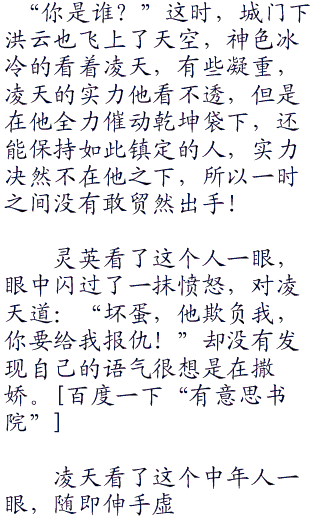 “你是谁？”这时，城门下
洪云也飞上了天空，神色冰
冷的看着凌天，有些凝重，
凌天的实力他看不透，但是
在他全力催动乾坤袋下，还
能保持如此镇定的人，实力
决然不在他之下，所以一时
之间没有敢贸然出手！
灵英看了这个人一眼，
眼中闪过了一抹愤怒，对凌
天道：“坏蛋，他欺负我，
你要给我报仇！”却没有发
现自己的语气很想是在撒
娇。[百度一下“有意思书
院”]
凌天看了这个中年人一
眼，随即伸手虚